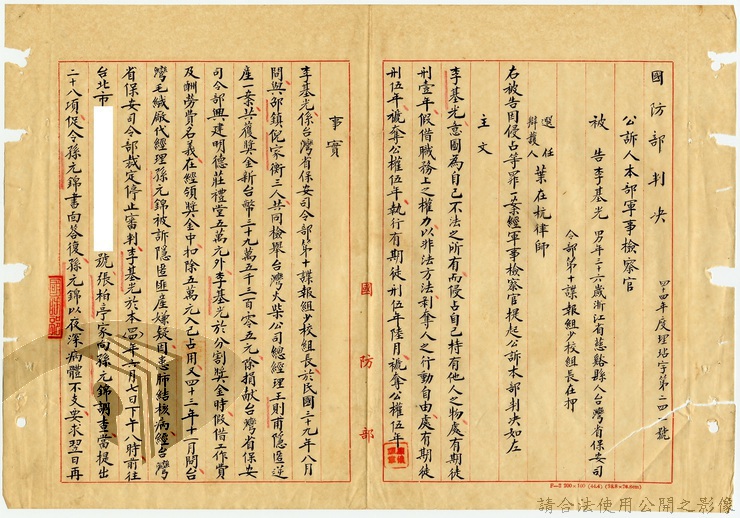 國防部判决
四四年度理玷字第二四一號
公訴人本部軍事檢察官
被告李基光 男年三十六歲浙江省慈谿縣人台灣省保安司
令部第十諜報組少校組長在押
選任
辯護人 葉在杭律師
右被告因侵占等罪一案經軍事檢察官提起公訴本部判决如左
主文
李基光意圖為自己不法之所有而侵占自己持有他人之物處有期徒
刑壹年假借職務上之權力以非法方法剝奪人之行動自由處有期徒
刑伍年褫奪公權伍年執行有期徒刑伍年陸月褫奪公權伍年
國防部
事實
李基光係台灣省保安司令部第十諜報組少校組長於民國三十九年八月
間與邵鎮倪家衡三人共同檢舉台灣火柴公司總經理王則甫隱匿逆
產一案共獲獎金新台幣三十九萬五千三百零五元除捐獻台灣省保安
司令部興建明德莊禮堂五萬元外李基光於分割獎金時假借工作費
及酬勞費名義在經領獎金中扣除五萬元入己占用又四十三年十一月間台
灣毛絨廠代經理孫元錦被訴隱匿匪產嫌疑因患肺結核病經台灣
省保安司令部裁定停止審判李基光於本四四年六月 日下午八時前往
台北市 號張柏亭家向孫元錦調查當提出
二十八項促令孫元錦書面答復孫元錦以夜深病體不支要求翌日再
F-2 200×100 (44.4) (54.8×39.6cm)
請合法使用公開之影像